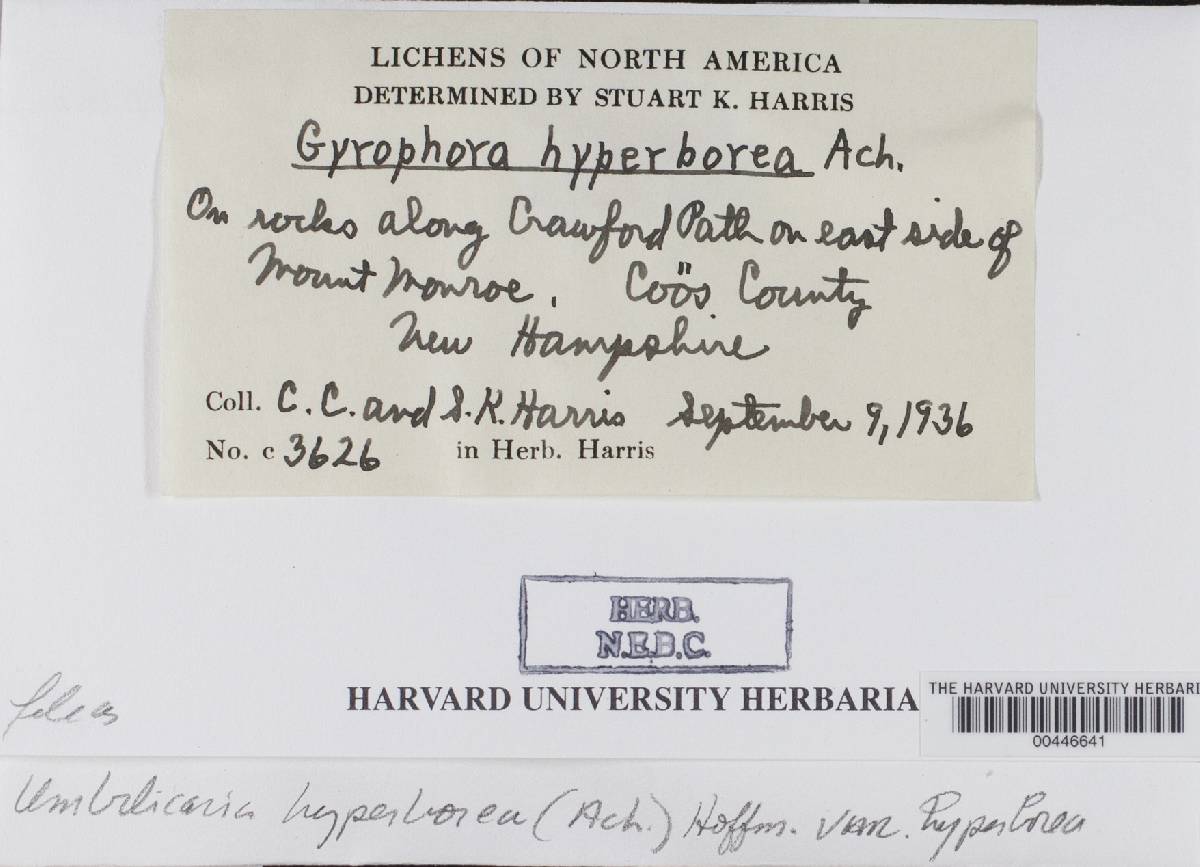 LICHENS OF NORTH AMERICA
DETERMINED BY STUART K. HARRIS
Gyrophora hyperborea Ach.
On rocks along Crawford Path on east side of
Mount Monroe, Coös County
New Hampshire
Coll. C. C. and S. K. Harris September 9, 1936
No. c 3626 in Herb. Harris
HERB.
N.E.B.C.
HARVARD UNIVERSITY HERBARIA
THE HARVARD UNIVERSITY HERBARI
00446641
file as
Umbilicaria hyperborea (Ach.) Hoffm. var. hyperborea